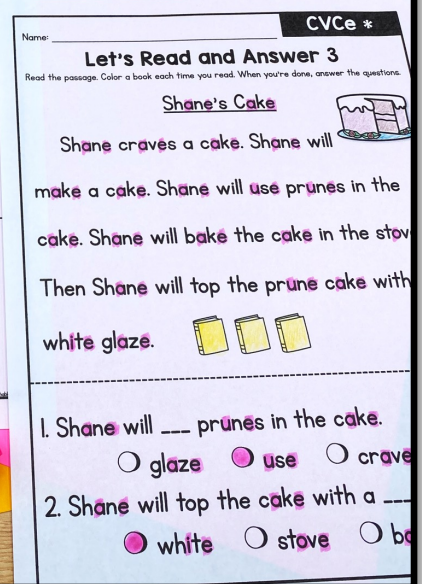 CVCe *
Name:
Let's Read and Answer 3
Read the passage. Color a book each time you read. When you're done, answer the questions.
Shane's Cake
Shane craves a cake. Shane will
make a cake. Shane will use prunes in the
cake. Shane will bake the cake in the
Then Shane will top the prune cake with
white glaze.
1. Shane will ___ prunes in the cake.
glaze use crave
2. Shane will top the cake with a ___
white stove